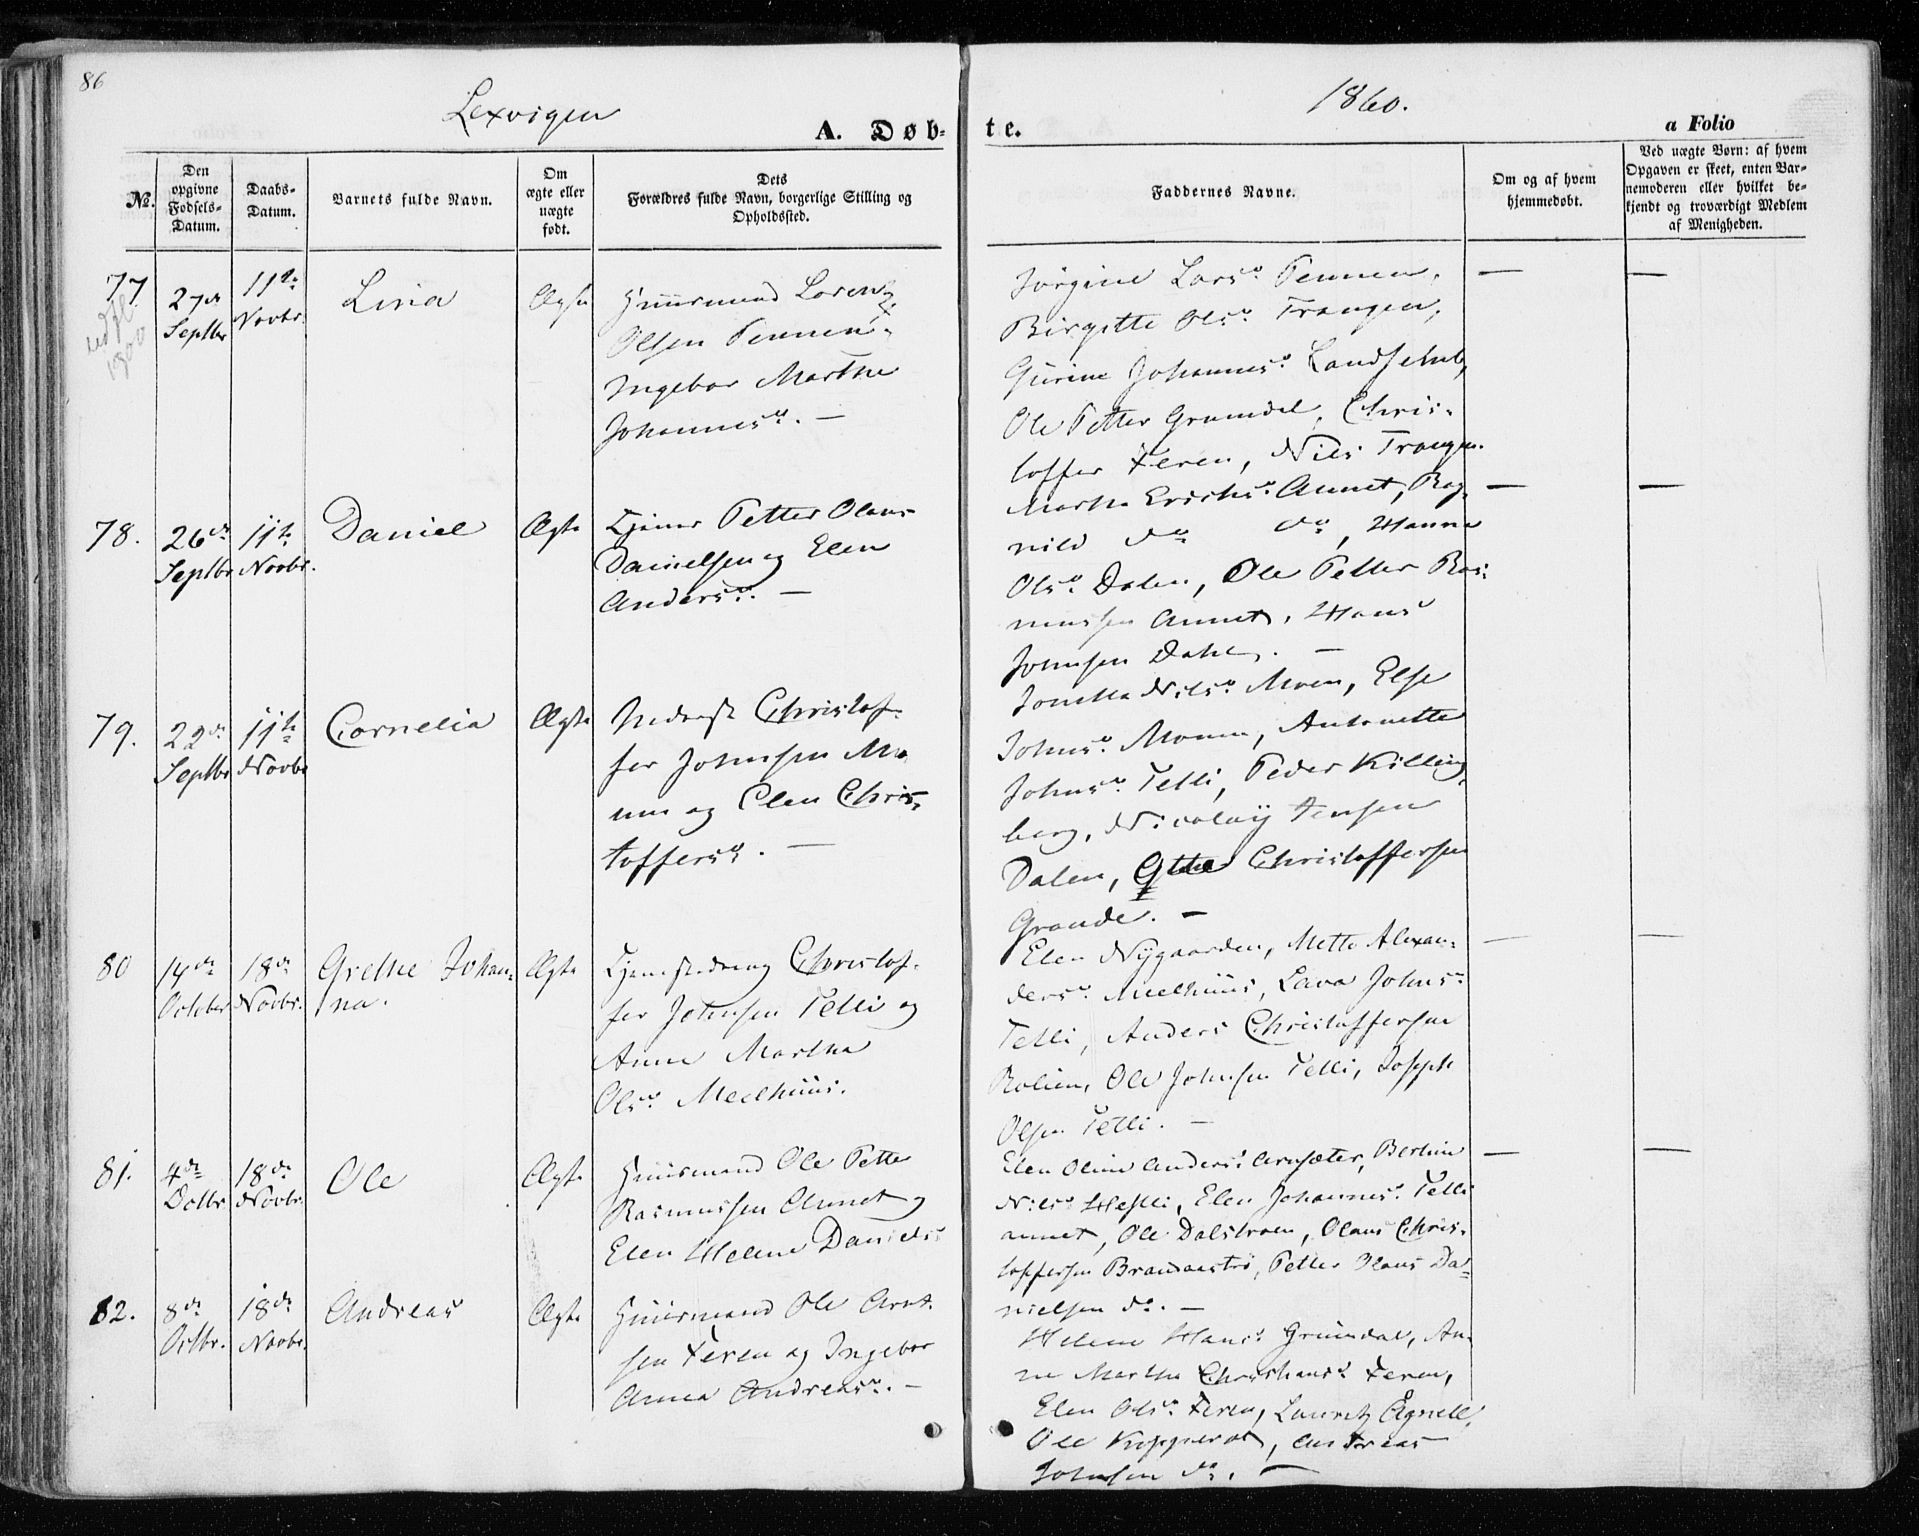 86
Lexvigen
1860.
A. Døb-
te.
a Folio
No.
Den opgivne Fødsels-Datum.
Daabs-Datum.
Barnets fulde Navn.
Om ægte eller uægte født.
Dets Forældres fulde Navn, borgerlige Stilling og Opholdssted.
Faddernes Navne.
Om og af hvem hjemmedøbt.
Ved uægte Børn: af hvem Opgaven er skeet, enten Barnemoderen eller hvilket bekjendt og troværdigt Medlem af Menigheden.
77
1800
27de Septbr
11te Novbr.
Lina
Ægte
Huusmand Lorentz
Olsen Tennen
Ingebor Martha
Johannesd. —
Jörgine Larsd. Tennen,
Birgitte Olsd. Trangen,
Gurine Johannesd.
Ole Petter Grumdal, Chris-
toffer Feren, Nils Trangen.
—
—
78.
26de Septbr
11te Novbr.
Daniel
Ægte
Petter Olaus
Danielsen og Elen
Andersd. —
Martha Erichsd. Aunet, Rag-
nild do do, Hanna
Olsd. Dalen, Ole Petter Ras-
mussen Aunet, Hans
Johnsen Dahl. —
—
—
79.
22de Septbr
11te Novbr
Cornelia
Ægte
Inderst Christof-
fer Johnsen Mo-
en og Elen Chris-
toffersd. —
Jonetta Nilsd. Moen, Else
Johnsd. Antonette
Johnsd. Telli, Peder Killing-
berg, Nicolay Jensen
Dalen, Christoffersen
Grande. —
80
14de October
18de Novbr.
Grethe Johan-
na.
Ægte
Christof-
fer Johnsen Telli og
Anne Martha
Olsd. Meelhuus.
Elen Nygaarden, Mette Alexan-
dersd. Meelhuus, Lava Johnsd.
Telli, Anders Christoffersen
Ole Johnsen Telli, Joseph
Olsen Telli. —
—
—
81.
4de Octbr
18de Novbr.
Ole
Ægte
Huusmand Ole Petter
Rasmussen Aunet og
Elen Helene Danielsd
Elen Oline Andersd. Bertine
Nilsd. Elen Johannesd. Telli
aunet, Ole Dalstroen, Olaus Chris-
toffersen Petter Olaus Da-
nielsen do. —
—
—
82.
8de Octbr.
18de Novbr.
Andreas
Ægte
Huusmand Ole Arnt-
sen Feren og Ingebor
Anna Andreasd. —
Helene Hansd. Grumdal, An-
ne Martha Christiansd. Feren,
Elen Olsd. Feren, Lauritz
Ole Andreas
Johnsen do. —